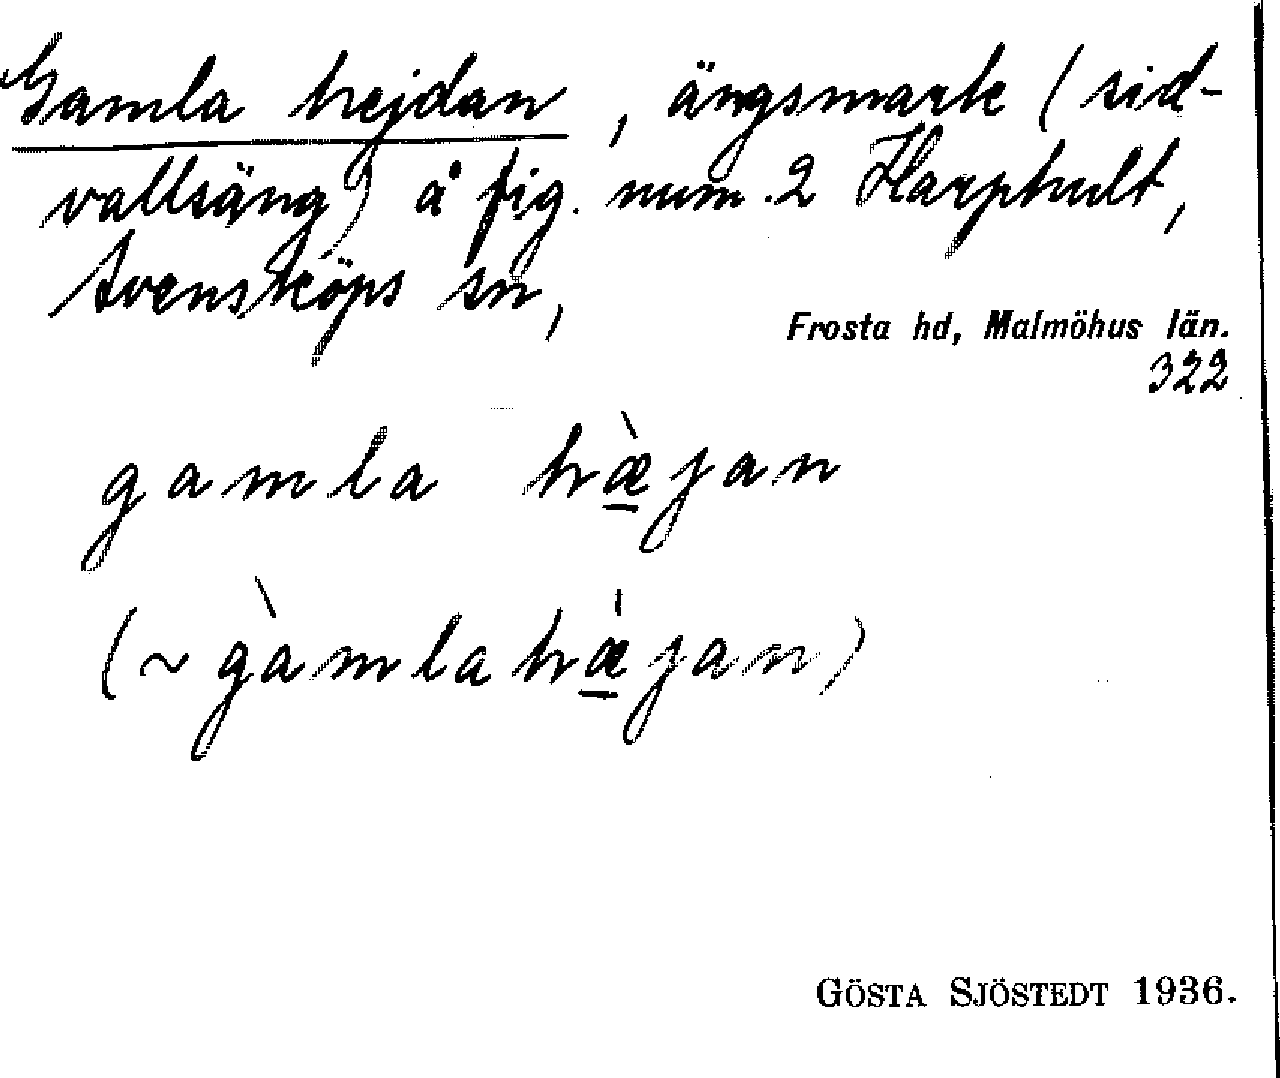 Gamla hejdan, ängsmark (sid-
vallsäng) å fig. num. 2 Harphult,
Svensköps sn,
Frosta hd, Malmöhus län.
322
gamla hæ̱̀jan
(~ gàmlahǽ̱jan)
GÖSTA SJÖSTEDT 1936.